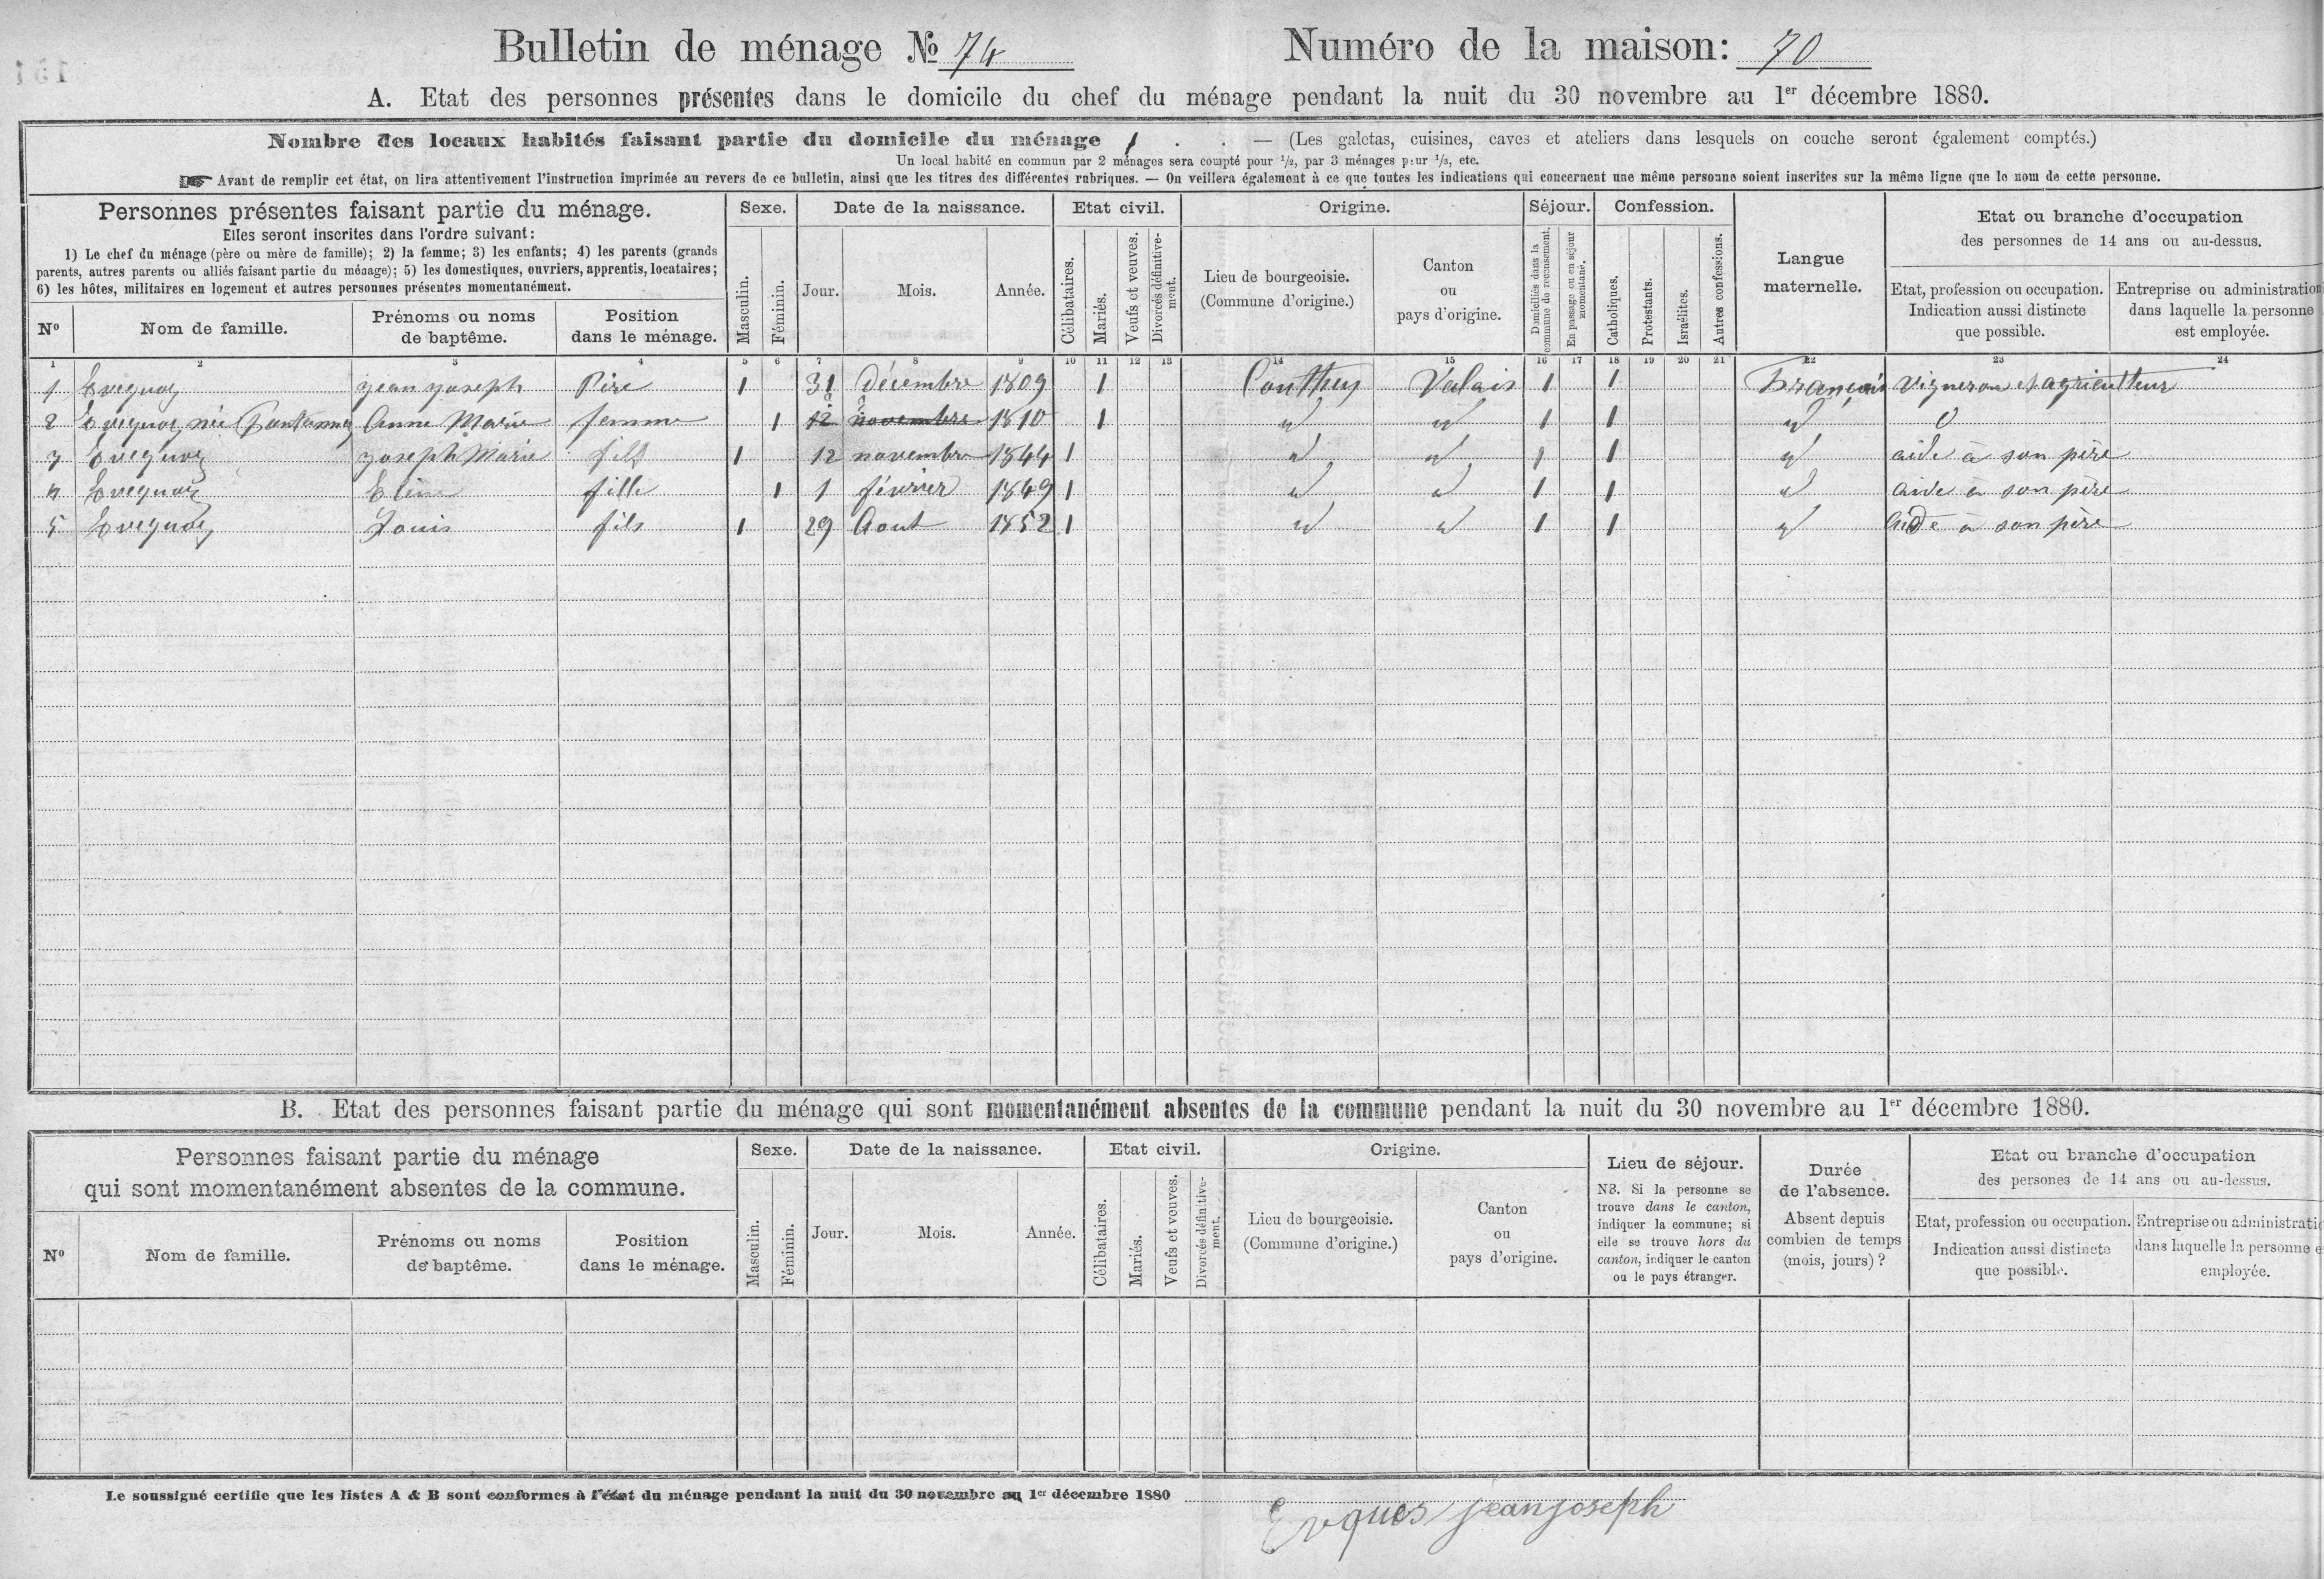 Bulletin de ménage No 74 Numéro de la maison: 70
A. Etat des personnes présentes dans le domicile du chef du ménage pendant la nuit du 30 novembre au 1er décembre 1880.
Nombre des locaux habités faisant partie du domicile du ménage 1 . . — (Les galetas, cuisines, caves et ateliers dans lesquels on couche seront également comptés.)
Un local habité en commun par 2 ménages sera compté pour 1/2, par 3 ménages pour 1/3, etc.
Avant de remplir cet état, on lira attentivement l'instruction imprimée au revers de ce bulletin, ainsi que les titres des différentes rubriques. — On veillera également à ce que toutes les indications qui concernent une même personne soient inscrites sur la même ligne que le nom de cette personne.
Personnes présentes faisant partie du ménage.
Elles seront inscrites dans l'ordre suivant:
1) Le chef du ménage (père ou mère de famille); 2) la femme; 3) les enfants; 4) les parents (grands
parents, autres parents ou alliés faisant partie du ménage); 5) les domestiques, ouvriers, apprentis, locataires;
6) les hôtes, militaires en logement et autres personnes présentes momentanément.
No
Nom de famille.
Prénoms ou noms
de baptême.
Position
dans le ménage.
Sexe.
Masculin.
Féminin.
Date de la naissance.
Jour.
Mois.
Année.
Etat civil.
Célibataires.
Mariés.
Veufs et veuves.
Divorcés définitive-
ment.
Origine.
Lieu de bourgeoisie.
(Commune d'origine.)
Canton
ou
pays d'origine.
Séjour.
Domiciliés dans la
commune de recensement.
En passage ou en séjour
momentané.
Confession.
Catholiques.
Protestants.
Israélites.
Autres confessions.
Langue
maternelle.
Etat ou branche d'occupation
des personnes de 14 ans ou au-dessus.
Etat, profession ou occupation.
Indication aussi distincte
que possible.
Entreprise ou administration
dans laquelle la personne
est employée.
1 2 3 4 5 6 7 8 9 10 11 12 13 14 15 16 17 18 19 20 21 22 23 24
1 Evequoz jean joseph Père 1 31 décembre 1809 1 Conthey Valais 1 1 Français Vigneron et agriculteur
2 Evequoz née Anne Marie femme 1 12 novembre 1810 1 " " 1 1 " 0
3 Evequoz joseph Marie fils 1 12 novembre 1844 1 " " 1 1 " aide à son père
4 Evequoz fille 1 1 février 1849 1 " " 1 1 " aide à son père
5 Evequoz Louis fils 1 29 Aout 1852 1 " " 1 1 " aide à son père
B. Etat des personnes faisant partie du ménage qui sont momentanément absentes de la commune pendant la nuit du 30 novembre au 1er décembre 1880.
Personnes faisant partie du ménage
qui sont momentanément absentes de la commune.
No
Nom de famille.
Prénoms ou noms
de baptême.
Position
dans le ménage.
Sexe.
Masculin.
Féminin.
Date de la naissance.
Jour.
Mois.
Année.
Etat civil.
Célibataires.
Mariés.
Veufs et veuves.
Divorcés définitive-
ment.
Origine.
Lieu de bourgeoisie.
(Commune d'origine.)
Canton
ou
pays d'origine.
Lieu de séjour.
NB. Si la personne se
trouve dans le canton,
indiquer la commune; si
elle se trouve hors du
canton, indiquer le canton
ou le pays étranger.
Durée
de l'absence.
Absent depuis
combien de temps
(mois, jours)?
Etat ou branche d'occupation
des persones de 14 ans ou au-dessus.
Etat, profession ou occupation.
Indication aussi distincte
que possible.
Entreprise ou administratio
dans laquelle la personne e
employée.
Le soussigné certifie que les listes A & B sont conformes à l'état du ménage pendant la nuit du 30 novembre au 1er décembre 1880
Evques jean joseph